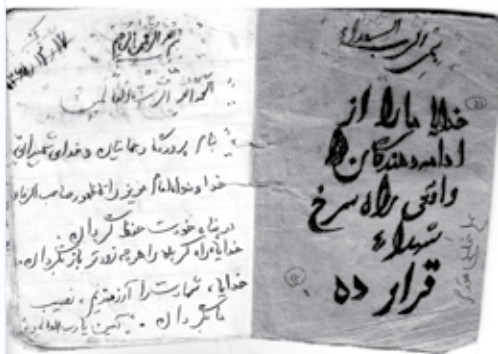 بسم رب الشهداء
خدایا ما را از
ادامه دهندگان
واقعی راه سرخ
شهداء
قرار ده
بسم الله الرحمن الرحیم
الحمد لله رب العالمین
بنام پروردگار و خدای
خداوندا امام عزیز را تا ظهور صاحب الزمان
در پناه خودت حفظ گردان.
خدایا راه کربلا را هر چه زودتر باز بگردان.
خدایا، شهادت را آرزومندیم، نصیب
ما بگردان. آمین یا رب العالمین